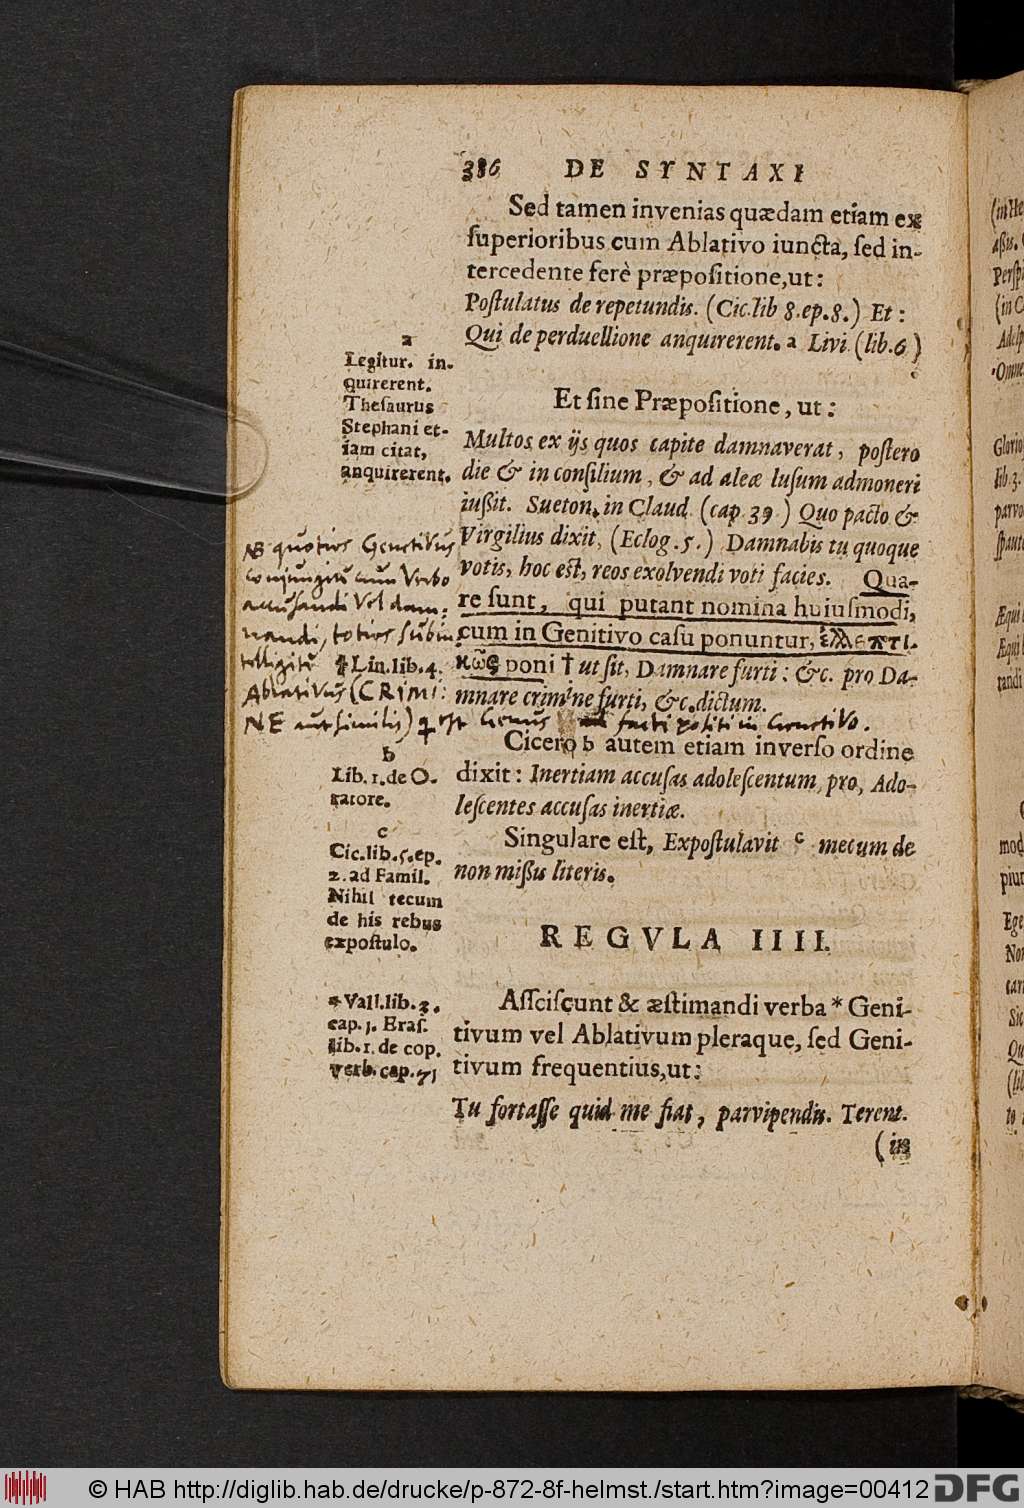 386 DE SYNTAXI
Sed tamen invenias quædam etiam ex
superioribus cum Ablativo iuncta, sed in-
tercedente ferè præpositione, ut:
Postulatus de repetundis. (Cic. lib 8. ep. 8.) Et:
Qui de perduellione anquirerent. a Livi (lib. 6)
a
Legitur. in-
quirerent.
Thesaurus
Stephani et-
iam citat,
anquirerent.
Et sine Præpositione, ut:
Multos ex ijs quos capite damnaverat, postero
die & in consilium, & ad aleæ lusum admoneri
iußit. Sueton. in Claud (cap 39) Quo pacto &
Virgilius dixit, (Eclog. 5.) Damnabis tu quoque
votis, hoc est, reos exolvendi voti facies. Qua-
re sunt, qui putant nomina huiusmodi,
cum in Genitivo casu ponuntur, ἐλλειπτι-
κῶς poni † ut sit, Damnare furti: &c. pro Da-
mnare crimine furti, &c. dictum.
NB quoties Genetivus
conjungitur cum Verbo
accusandi Vel dam-
nandi, toties subin
telligitur
† Lin. lib. 4.
Ablativus (CRIMI:
NE aut similis) q est Genus facti positi in Genetivo.
Cicero b autem etiam inverso ordine
dixit: Inertiam accusas adolescentum, pro, Ado-
lescentes accusas inertiæ.
b
Lib. 1. de O-
ratore.
Singulare est, Expostulavit c mecum de
non mißis literis.
c
Cic. lib. 5. ep.
2. ad Famil.
Nihil tecum
de his rebus
expostulo.
REGVLA IIII.
Asciscunt & æstimandi verba * Geni-
tivum vel Ablativum pleraque, sed Geni-
tivum frequentius, ut:
* Vall. lib. 3.
cap. 1. Eras.
lib. 1. de cop.
verb. cap. 71
Tu fortasse quid me fiat, parvipendis. Terent.
(in
© HAB http://diglib.hab.de/drucke/p-872-8f-helmst./start.htm?image=00412 DFG